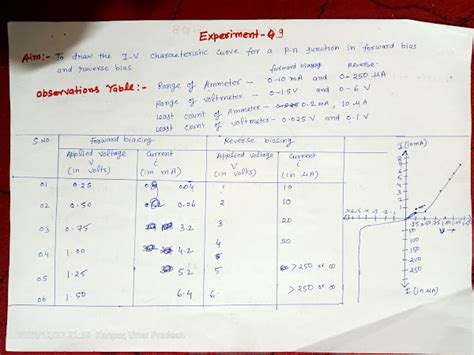 Experiment-9
Aim:- To draw the I-V characteristic curve for a P-n junction in forward bias
and reverse bias.
forward biasing Reverse-
Observations Table:- Range of Ammeter - 0-10 mA and 0-250 μA
Range of voltmeter - 0-1.5V and 0-6 V
Least count of Ammeter - 0.2 mA, 10 μA
Least count of voltmeter - 0.025 V and 0.1 V
S.No. Forward biasing Reverse biasing
Applied voltage Current Applied voltage Current
V i V i
(in volts) (in mA) (in volts) (in μA)
01 0.25 0.04 1 10
02 0.50 0.06 2 10
03 0.75 3.2 3 20
04 1.00 4.2 4 50
05 1.25 5.2 5 > 250 or ∞
06 1.50 6.4 6. > 250 or ∞
I (in mA)
V→
50
100
150
200
250
I (in μA)
2020/12/27 21:59 Kanpur, Uttar Pradesh